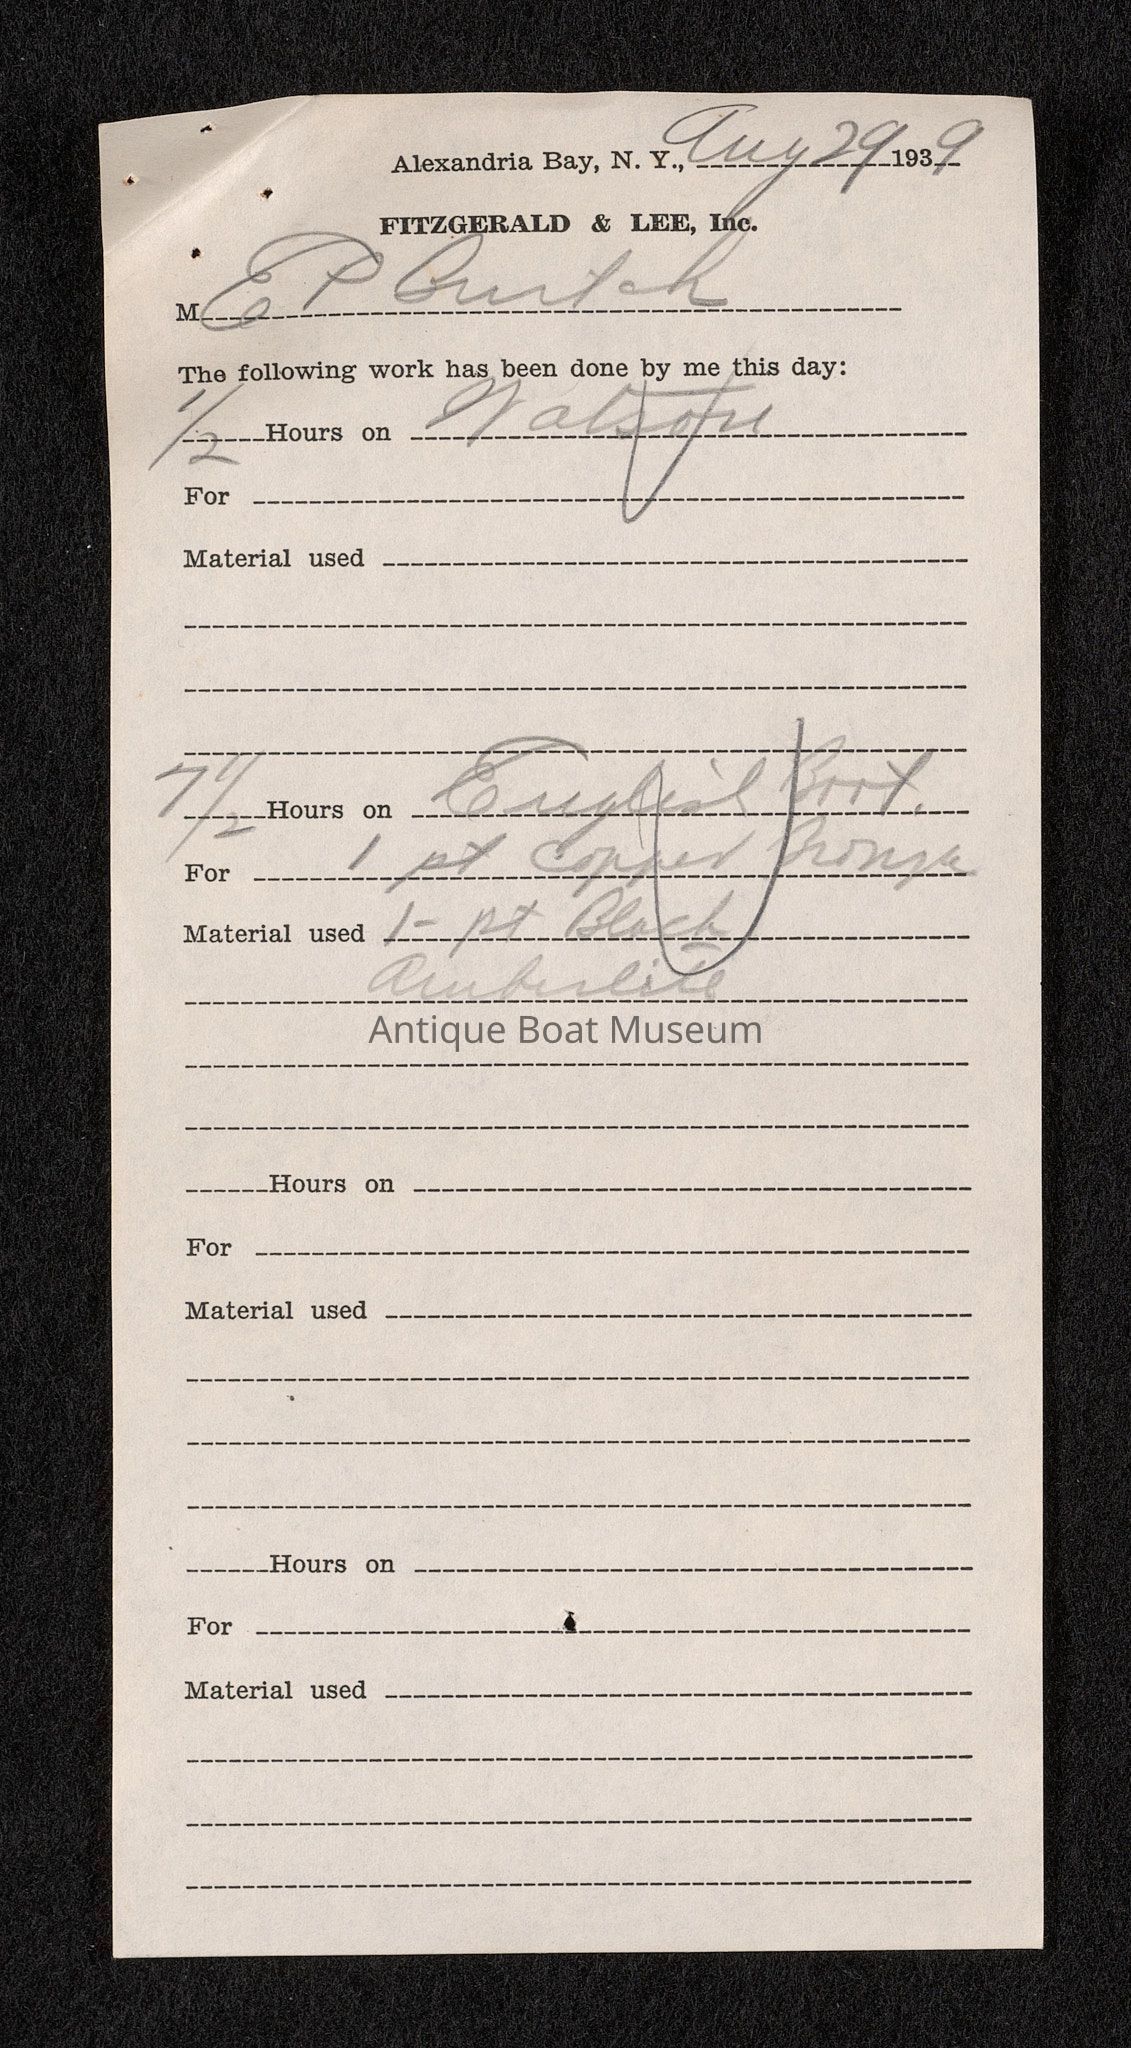 Alexandria Bay, N. Y., Aug 29 1939
FITZGERALD & LEE, Inc.
M E P Burtch
The following work has been done by me this day:
1/2 Hours on Watson
For
Material used
7 1/2 Hours on English Boot.
For 1 pt Copper Bronze
Material used 1- pt Black
Amberlite
Antique Boat Museum
Hours on
For
Material used
Hours on
For
Material used